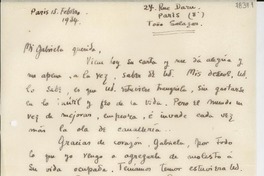 Paris 15. Febrero
1934.
27. Rue Daru.
PARIS (8°)
Mi Gabriela querida,
Viene hoy su carta y me da alegría y
me apena, a la vez, saber de Ud. Mis deseos, Ud.
lo sabe, es que Ud. estuviera tranquila, sin gastarse
en lo inútil y flor de la vida. Pero el mundo en
vez de mejorar, empeora, e invade cada vez
más la ola de
Gracias de corazón, Gabriela, por todo
lo que yo vengo a agregarle de molestia a
su vida ocupada. Teníamos temor estuviera Ud.